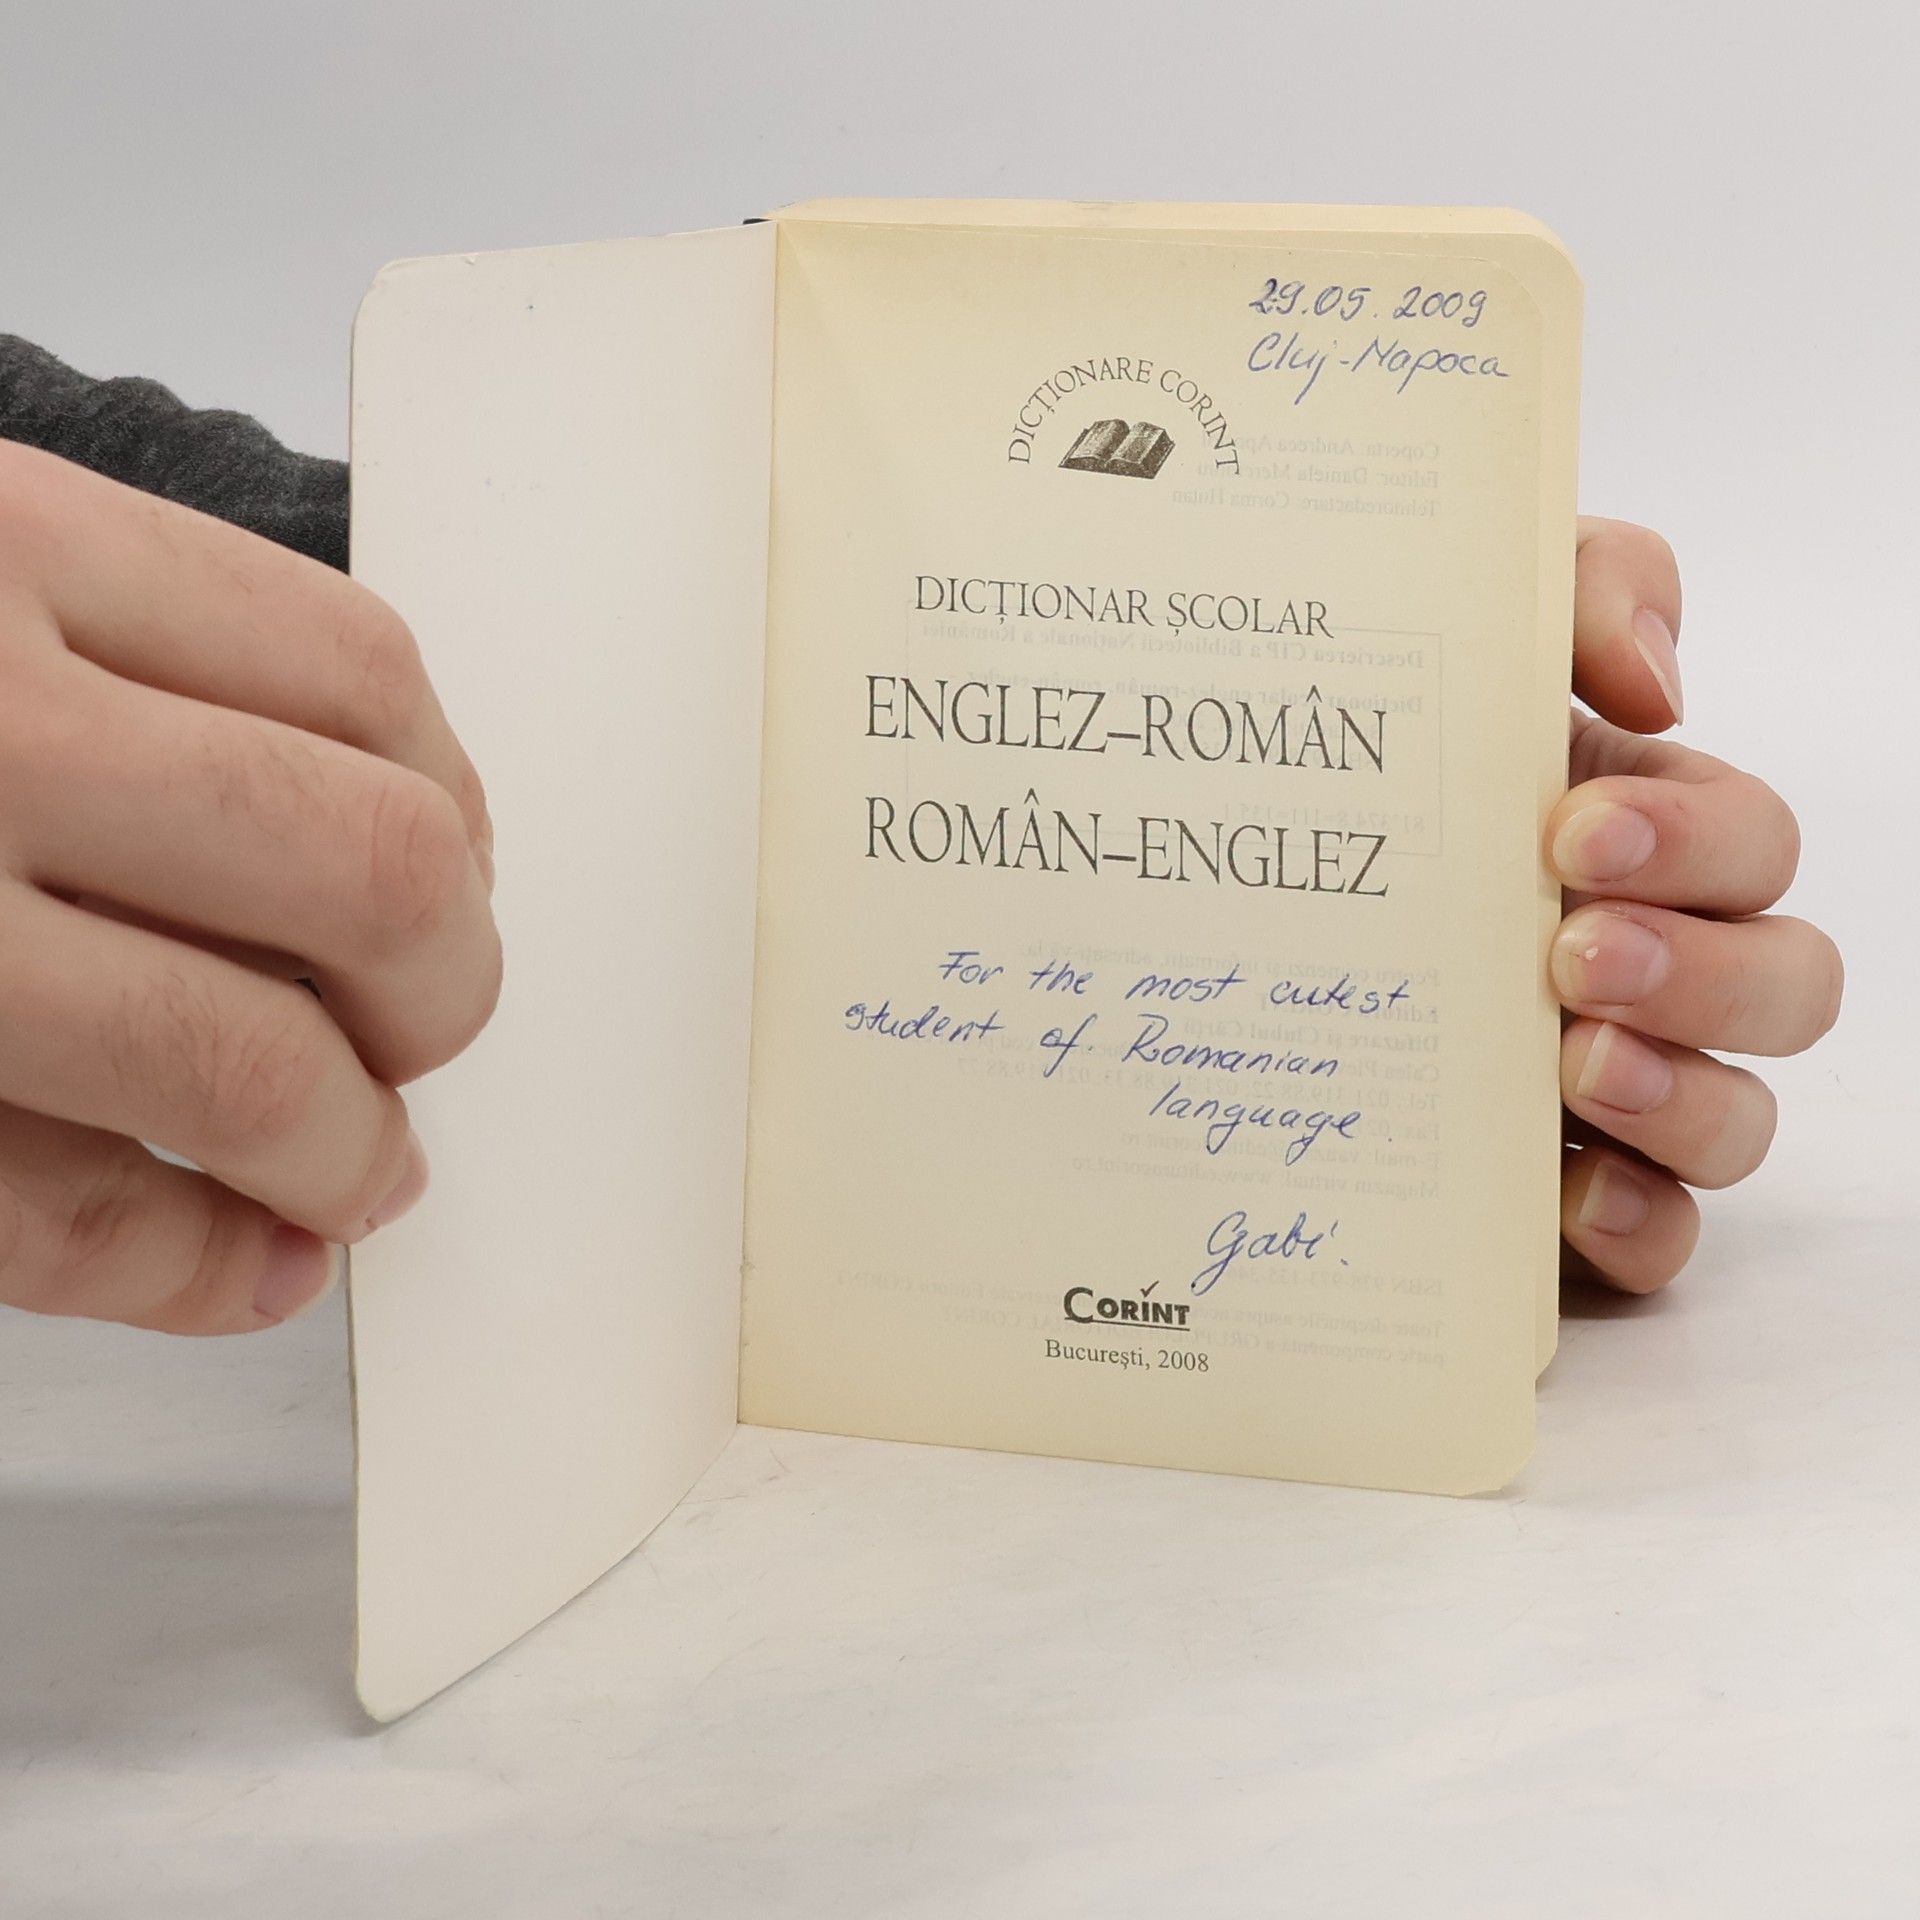 29.05.2009
Cluj-Napoca
DICȚIONARE CORINT
DICȚIONAR ȘCOLAR
ENGLEZ–ROMÂN
ROMÂN–ENGLEZ
For the most cutest
student of Romanian
language.
Gabi.
CORINT
București, 2008